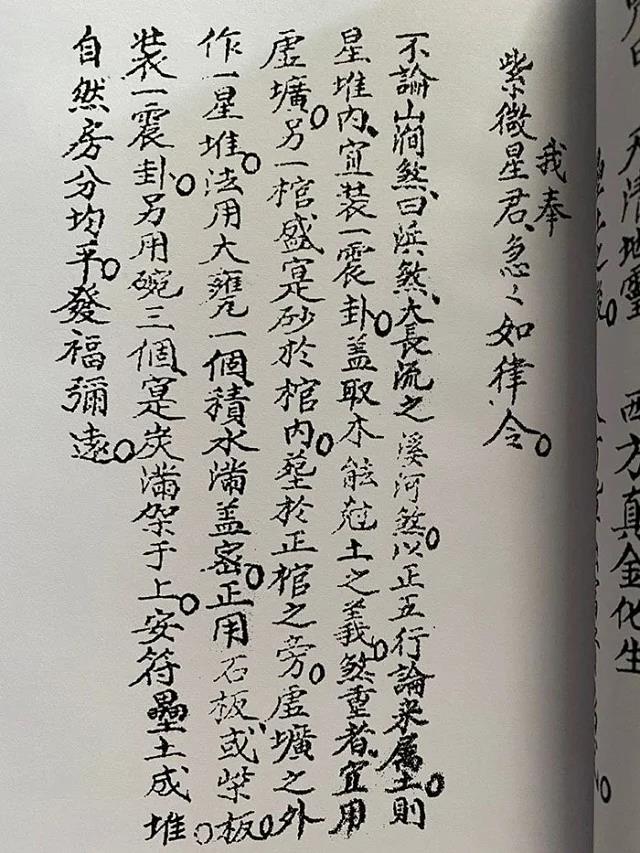 我奉
紫微星君、急々如律令。
不論山澗煞、曰浜煞、大長流之溪河煞。以正五行論来屬土。則
星堆内、宜裝一震卦。盖取木能尅土之義。煞重者、宜用
虛壙。另一棺盛寔砂於棺内。塟於正棺之旁。虛壙之外
作一星堆。法用大甕一個積水滿盖密。正用石板、或柴板。
裝一震卦。另用碗三個寔炭滿架于上。安符壘土成堆。
自然房分均平。發福彌遠。
天清地靈
西方真金化生